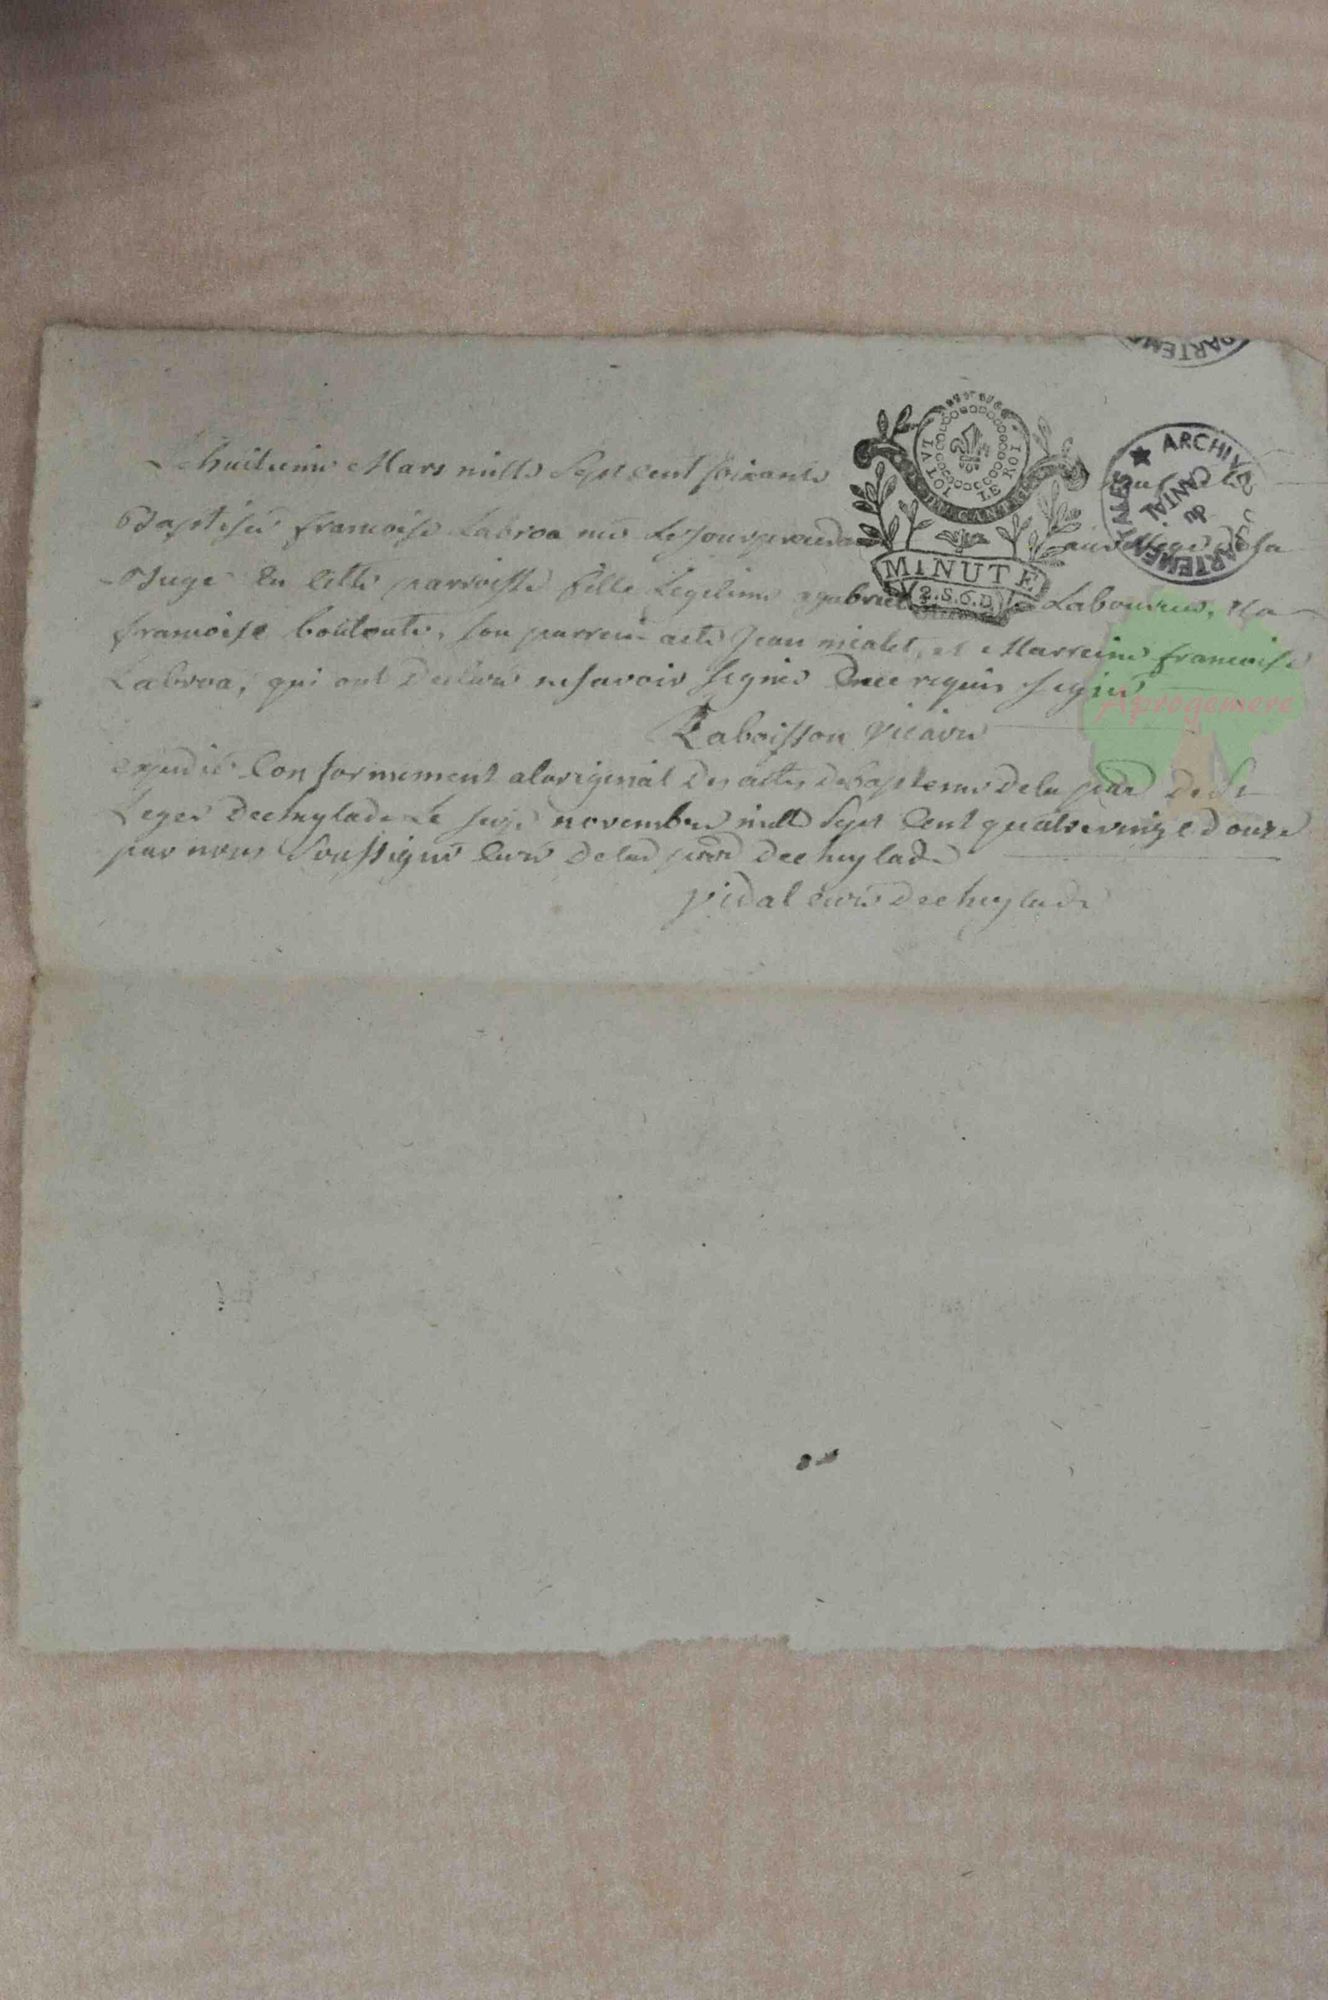 Le huitieme Mars mille Sept Cent soixante neuf a été
Baptisée francoise Labroa née le jour precedant au village de la
Buge En Cette parroisse fille Legitime a gabriel Laboureur, et a
francoise boutoute, son parrein a eté Jean mialet, et Marreine francoise
Labroa, qui ont Declaré ne savoir signer De ce requis signé
Laboisson vicaire
expedié Conformement a loriginal Des actes de Baptemes de la parr De St
Leger Decheylade Le seize novembre mill Sept Cent quatrevingt douze
par nous Soussigné Curé de lad parr Decheylade
Vidal curé Decheylade
LA LOI LE ROI
DU CANTAL
MINUTE
2.S.6.D.
ARCHIVES DEPARTEMENTALES
du
CANTAL
PARTEMEN
Aprogemere